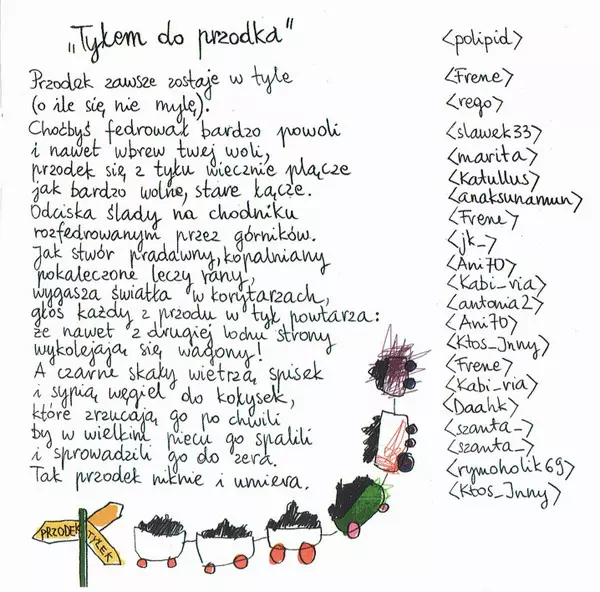 „Tyłem do przodka”
<polipid>
Przodek zawsze zostaje w tyle
<Frene>
(o ile się nie mylę).
<rego>
Choćbyś fedrował bardzo powoli
<slawek33>
i nawet wbrew twej woli,
<marita>
przodek się z tyłu wiecznie plącze
<Katullus>
jak bardzo wolne, stare łącze.
<anaksunamun>
Odciska ślady na chodniku
<Frene>
rozfedrowanym przez górników.
<jk_>
Jak stwór pradawny, kopalniany
<Ani70>
pokaleczone leczy rany,
<Kabi_ria>
wygasza światła w korytarzach,
<antonia2>
głos każdy z przodu w tył powtarza:
<Ani70>
że nawet z drugiej bodnu strony
<Kłos_Inny>
wykolejają się wagony!
<Frene>
A czarne skały wietrzą spisek
<Kabi_ria>
i sypią węgiel do kołysek,
<Daahk>
które zrzucają go po chwili
<szanta_>
by w wielkim piecu go spalili
<szanta_>
i sprowadzili go do zera.
<rymoholik69>
Tak przodek niknie i umiera.
<Kłos_Inny>
PRZODEK
TYŁEK